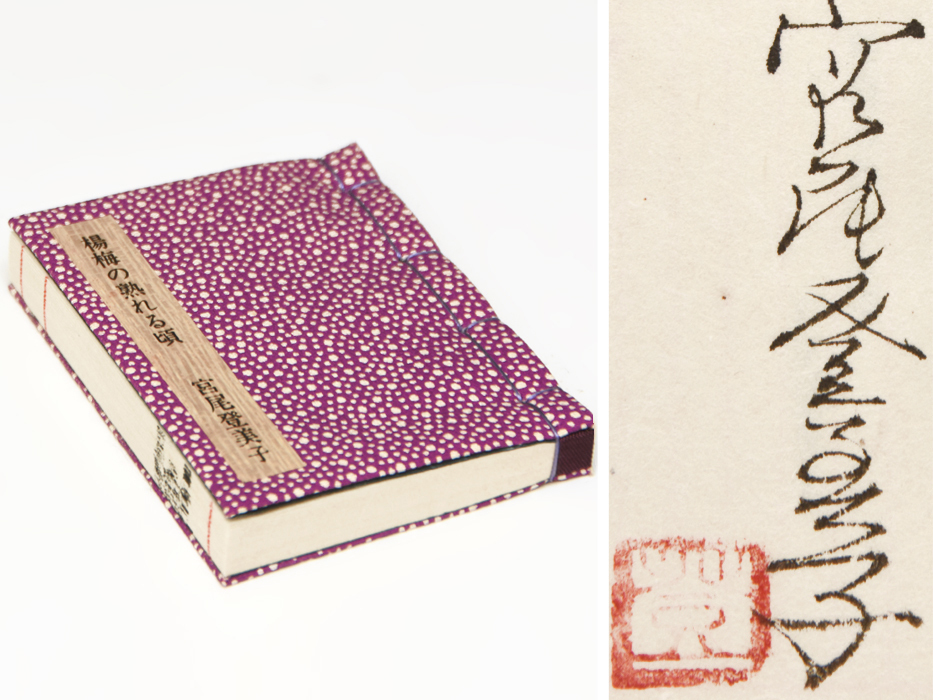 楊梅の熟れる頃
宮尾登美子
宮尾登美子